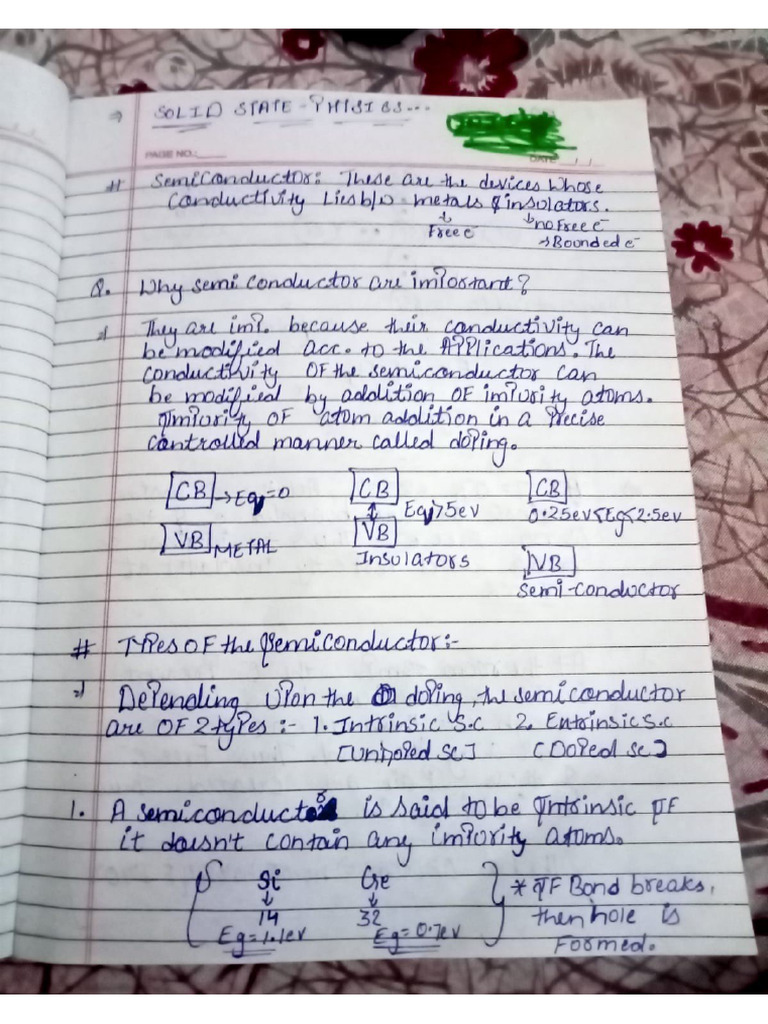 ⇒ SOLID STATE-PHYSICS...
PAGE NO.:
DATE / /
# Semiconductor: These are the devices whose
conductivity Lies b/w metals & insulators.
↓ Free e⁻ ↳ no Free e⁻
→ Bounded e⁻
Q. Why semiconductor are important?
⇒ They are imp. because their conductivity can
be modified acc. to the Applications. The
conductivity OF the semiconductor can
be modified by addition OF impurity atoms.
Impurity OF atom addition in a Precise
controlled manner called doping.
CB → Eg=0 CB CB
Eg>5ev 0.25ev<Eg<2.5ev
VB METAL VB VB
Insulators
Semi-conductor
# Types OF the Semiconductor:-
⇒ Depending upon the doping, the semiconductor
are OF 2 types :- 1. Intrinsic S.C 2. Entrinsic S.C
[Undoped SC] (Doped SC]
1. A semiconductor is said to be Intrinsic IF
it doesn't contain any impurity atoms.
Si Ge * IF Bond breaks,
↓ ↓
14 32 then hole is
Eg=1.1ev Eg=0.7ev Formed.